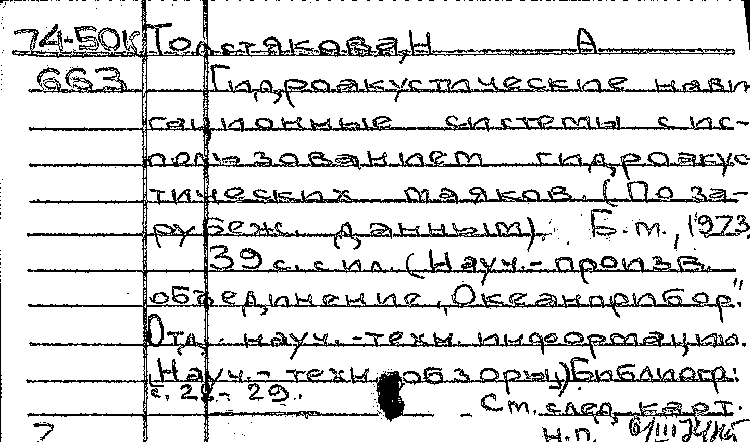 74-50к Толстякова, Н А
663 Гидроакустические нави
гационные системы с ис-
пользованием гидроакус
тических маяков. (По за-
рубеж. данным). Б.м., 1973,
39 с. с ил. (Науч.-произв.
объединение „Океанприбор".
Отд. науч.-техн. информации.
Науч.-техн. обзоры) Библиогр.:
с. 28-29.
См. след. карт.
н.п.